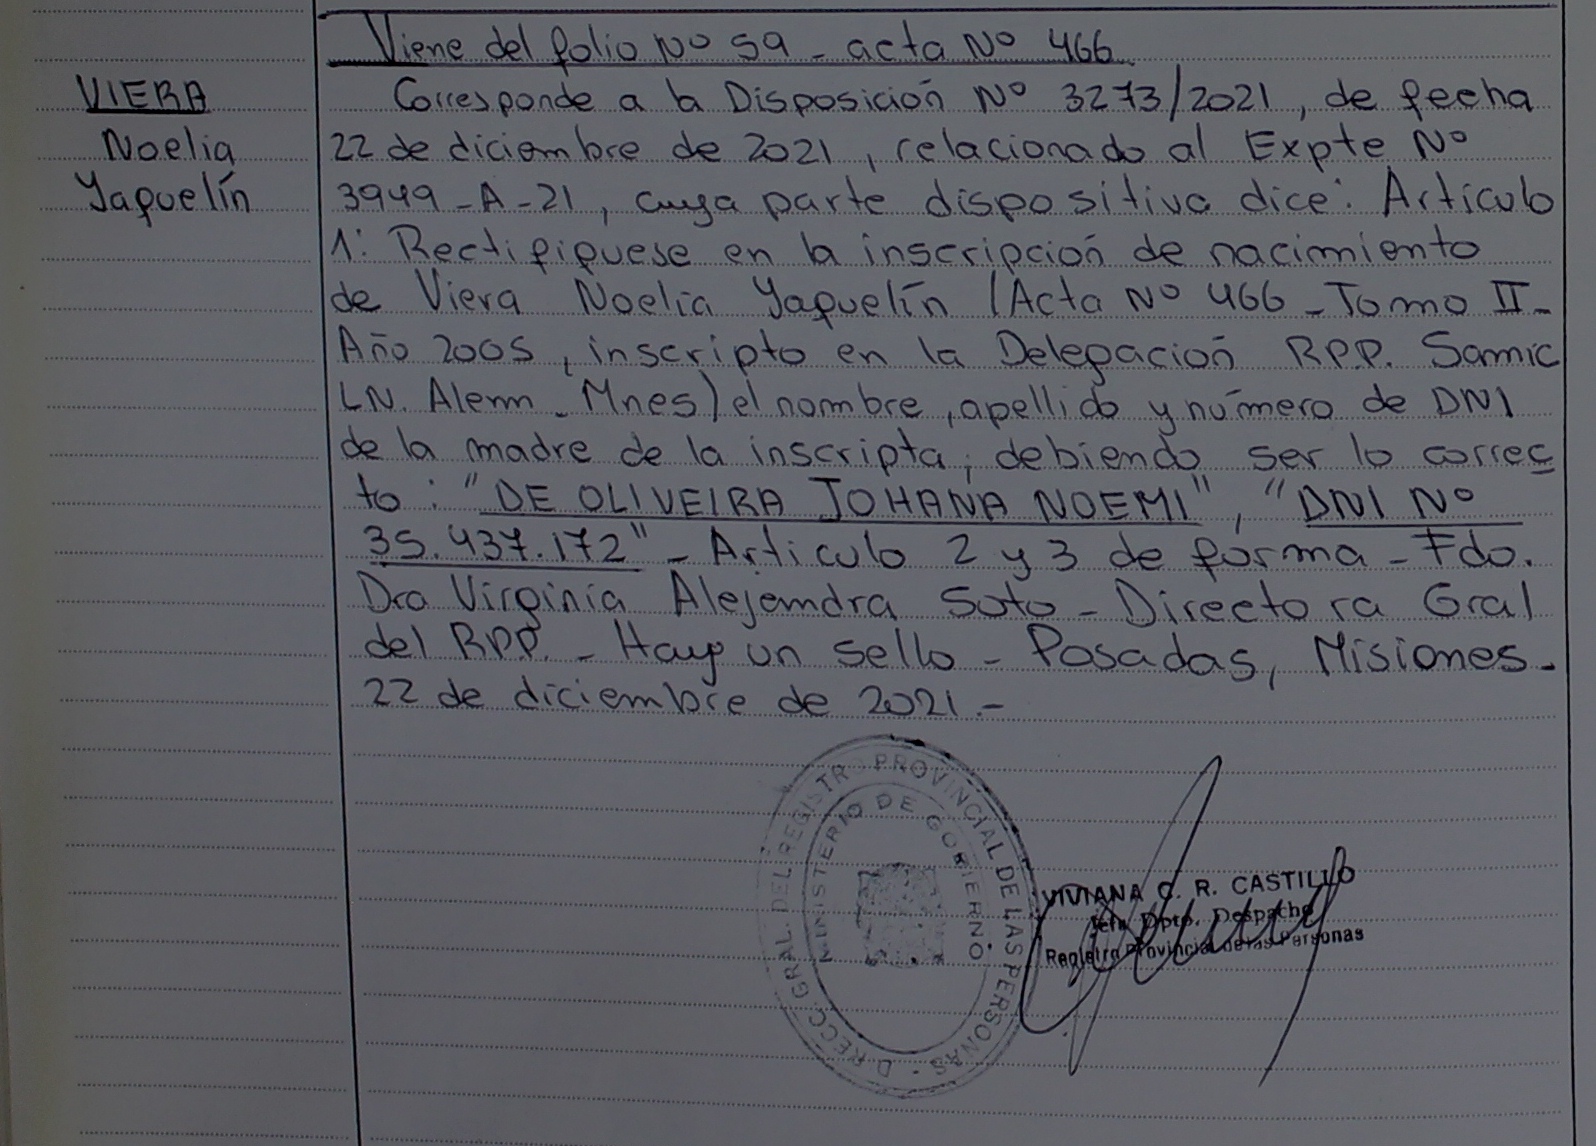 Viene del folio Nº 59 - acta Nº 466
VIERA
Noelia
Yaquelín
Corresponde a la Disposición Nº 3273/2021, de fecha
22 de diciembre de 2021, relacionado al Expte Nº
3949-A-21, cuya parte dispositiva dice: Artículo
1: Rectifiquese en la inscripción de nacimiento
de Viera Noelia Yaquelín (Acta Nº 466 - Tomo II -
Año 2005, inscripto en la Delegación RPP. Samic
LN. Alem - Mnes) el nombre, apellido y número de DNI
de la madre de la inscripta, debiendo ser lo correc
to: "DE OLIVEIRA JOHANA NOEMI", "DNI Nº
35.437.172" - Articulo 2 y 3 de forma - Fdo.
Dra Virginia Alejandra Soto - Directora Gral
del RPP. - Hay un sello - Posadas, Misiones -
22 de diciembre de 2021.-
DIRECC. GRAL. DEL REGISTRO PROVINCIAL DE LAS PERSONAS -
MINISTERIO DE GOBIERNO
VIVIANA C. R. CASTILLO
Jefa Dpto. Despacho
Registro Provincial de las Personas